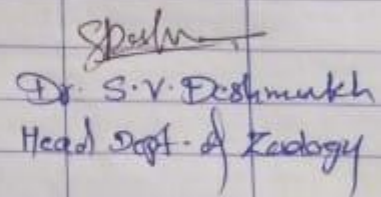 Dr. S.V. Deshmukh
Head Dept. of Zoology